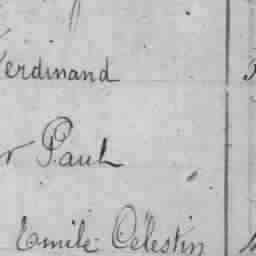 Ferdinand
r Paul
Emile Célestin